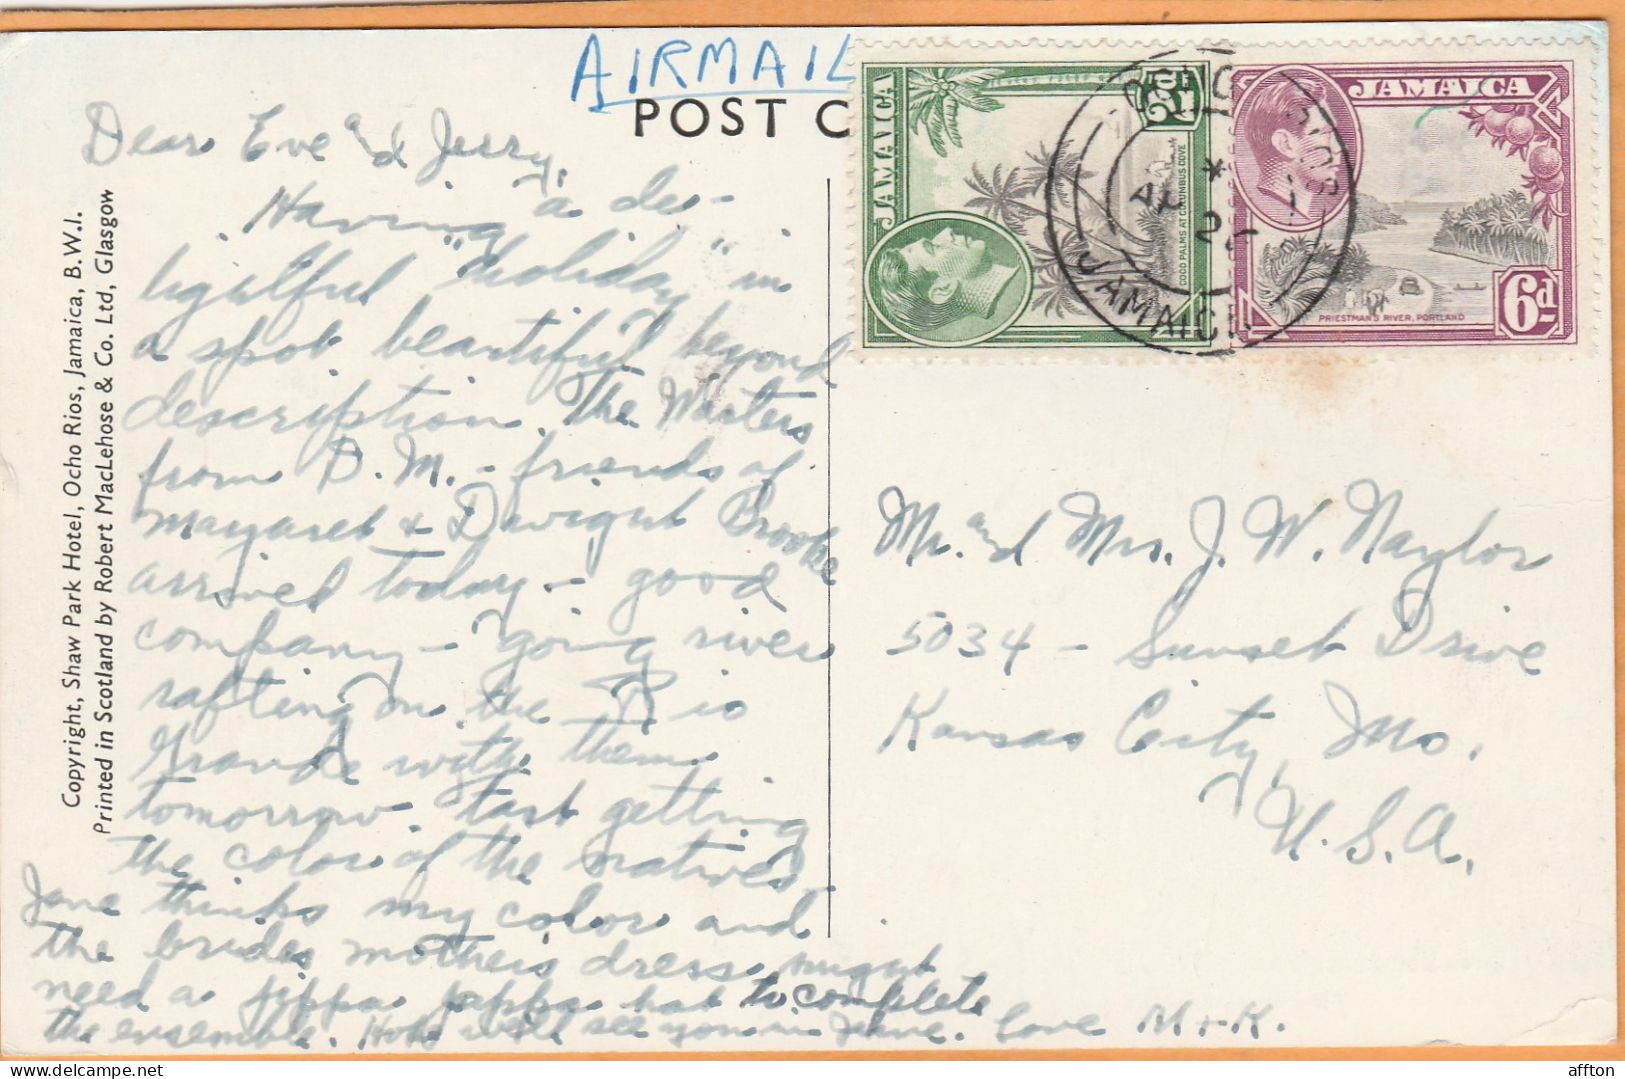 AIRMAIL
POST C
Dear Eve and Jerry,
Having a de-
lightful "holiday" in
a spot beautiful beyond
description. The Masters
from D. M. - friends of
Margaret & Dwight Brooke
arrived today - good
company - going river
rafting on the Rio
Grande with them
tomorrow. Fast getting
the color of the natives -
Jane thinks my color and
the brides mother's dress might
need a jippa jappa hat to complete
the ensemble. Hope we'll see you in June. Love M + K.
Copyright, Shaw Park Hotel, Ocho Rios, Jamaica, B.W.I.
Printed in Scotland by Robert MacLehose & Co. Ltd, Glasgow
JAMAICA
COCO PALMS AT COLUMBUS COVE
JAMAICA
PRIESTMAN'S RIVER, PORTLAND
6d
JAMAICA
Mr. and Mrs. J. W. Naylor
5034 - Sunset Drive
Kansas City, Mo.
U. S. A.
affton
delcampe.net